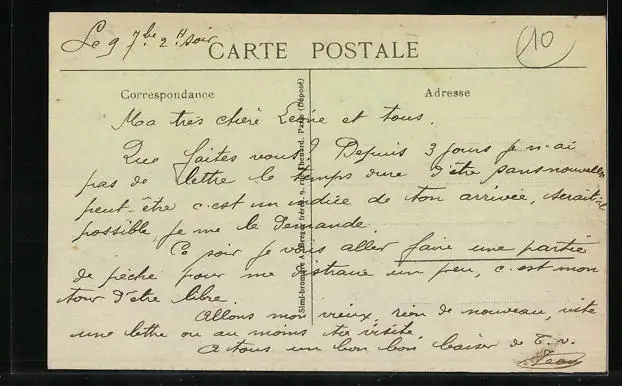 Le 9 7bre 2 H soir
10
CARTE POSTALE
Correspondance
Adresse
Ma très chère et tous.
Que faites vous ? Depuis 3 jours je n'ai
pas de lettre le temps dure d'être sans nouvelles
peut-être c'est un indice de ton arrivée, serait-ce
possible, je me le demande.
Ce soir je vais aller faire une partie
de pêche pour me distraire un peu, c'est mon
tour d'être libre.
Allons mon vieux, rien de nouveau, vite
une lettre ou au moins ta visite
A tous un bon bon baiser de T. v.
Simi-bromure A. Breger frères, 9, rue Thénard, Paris (Déposé)